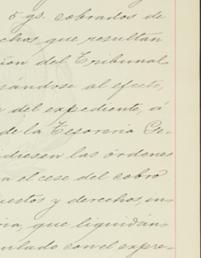 5 gs. cobrados de
chos, que resultan
ion del Tribunal
sándose al efecto,
del expediente, á
de la Tesoreria Ge-
idiesen las órdenes
n el cese del cobro
uestos y derechos, en
ria, que liquidán-
ulado con el expre-